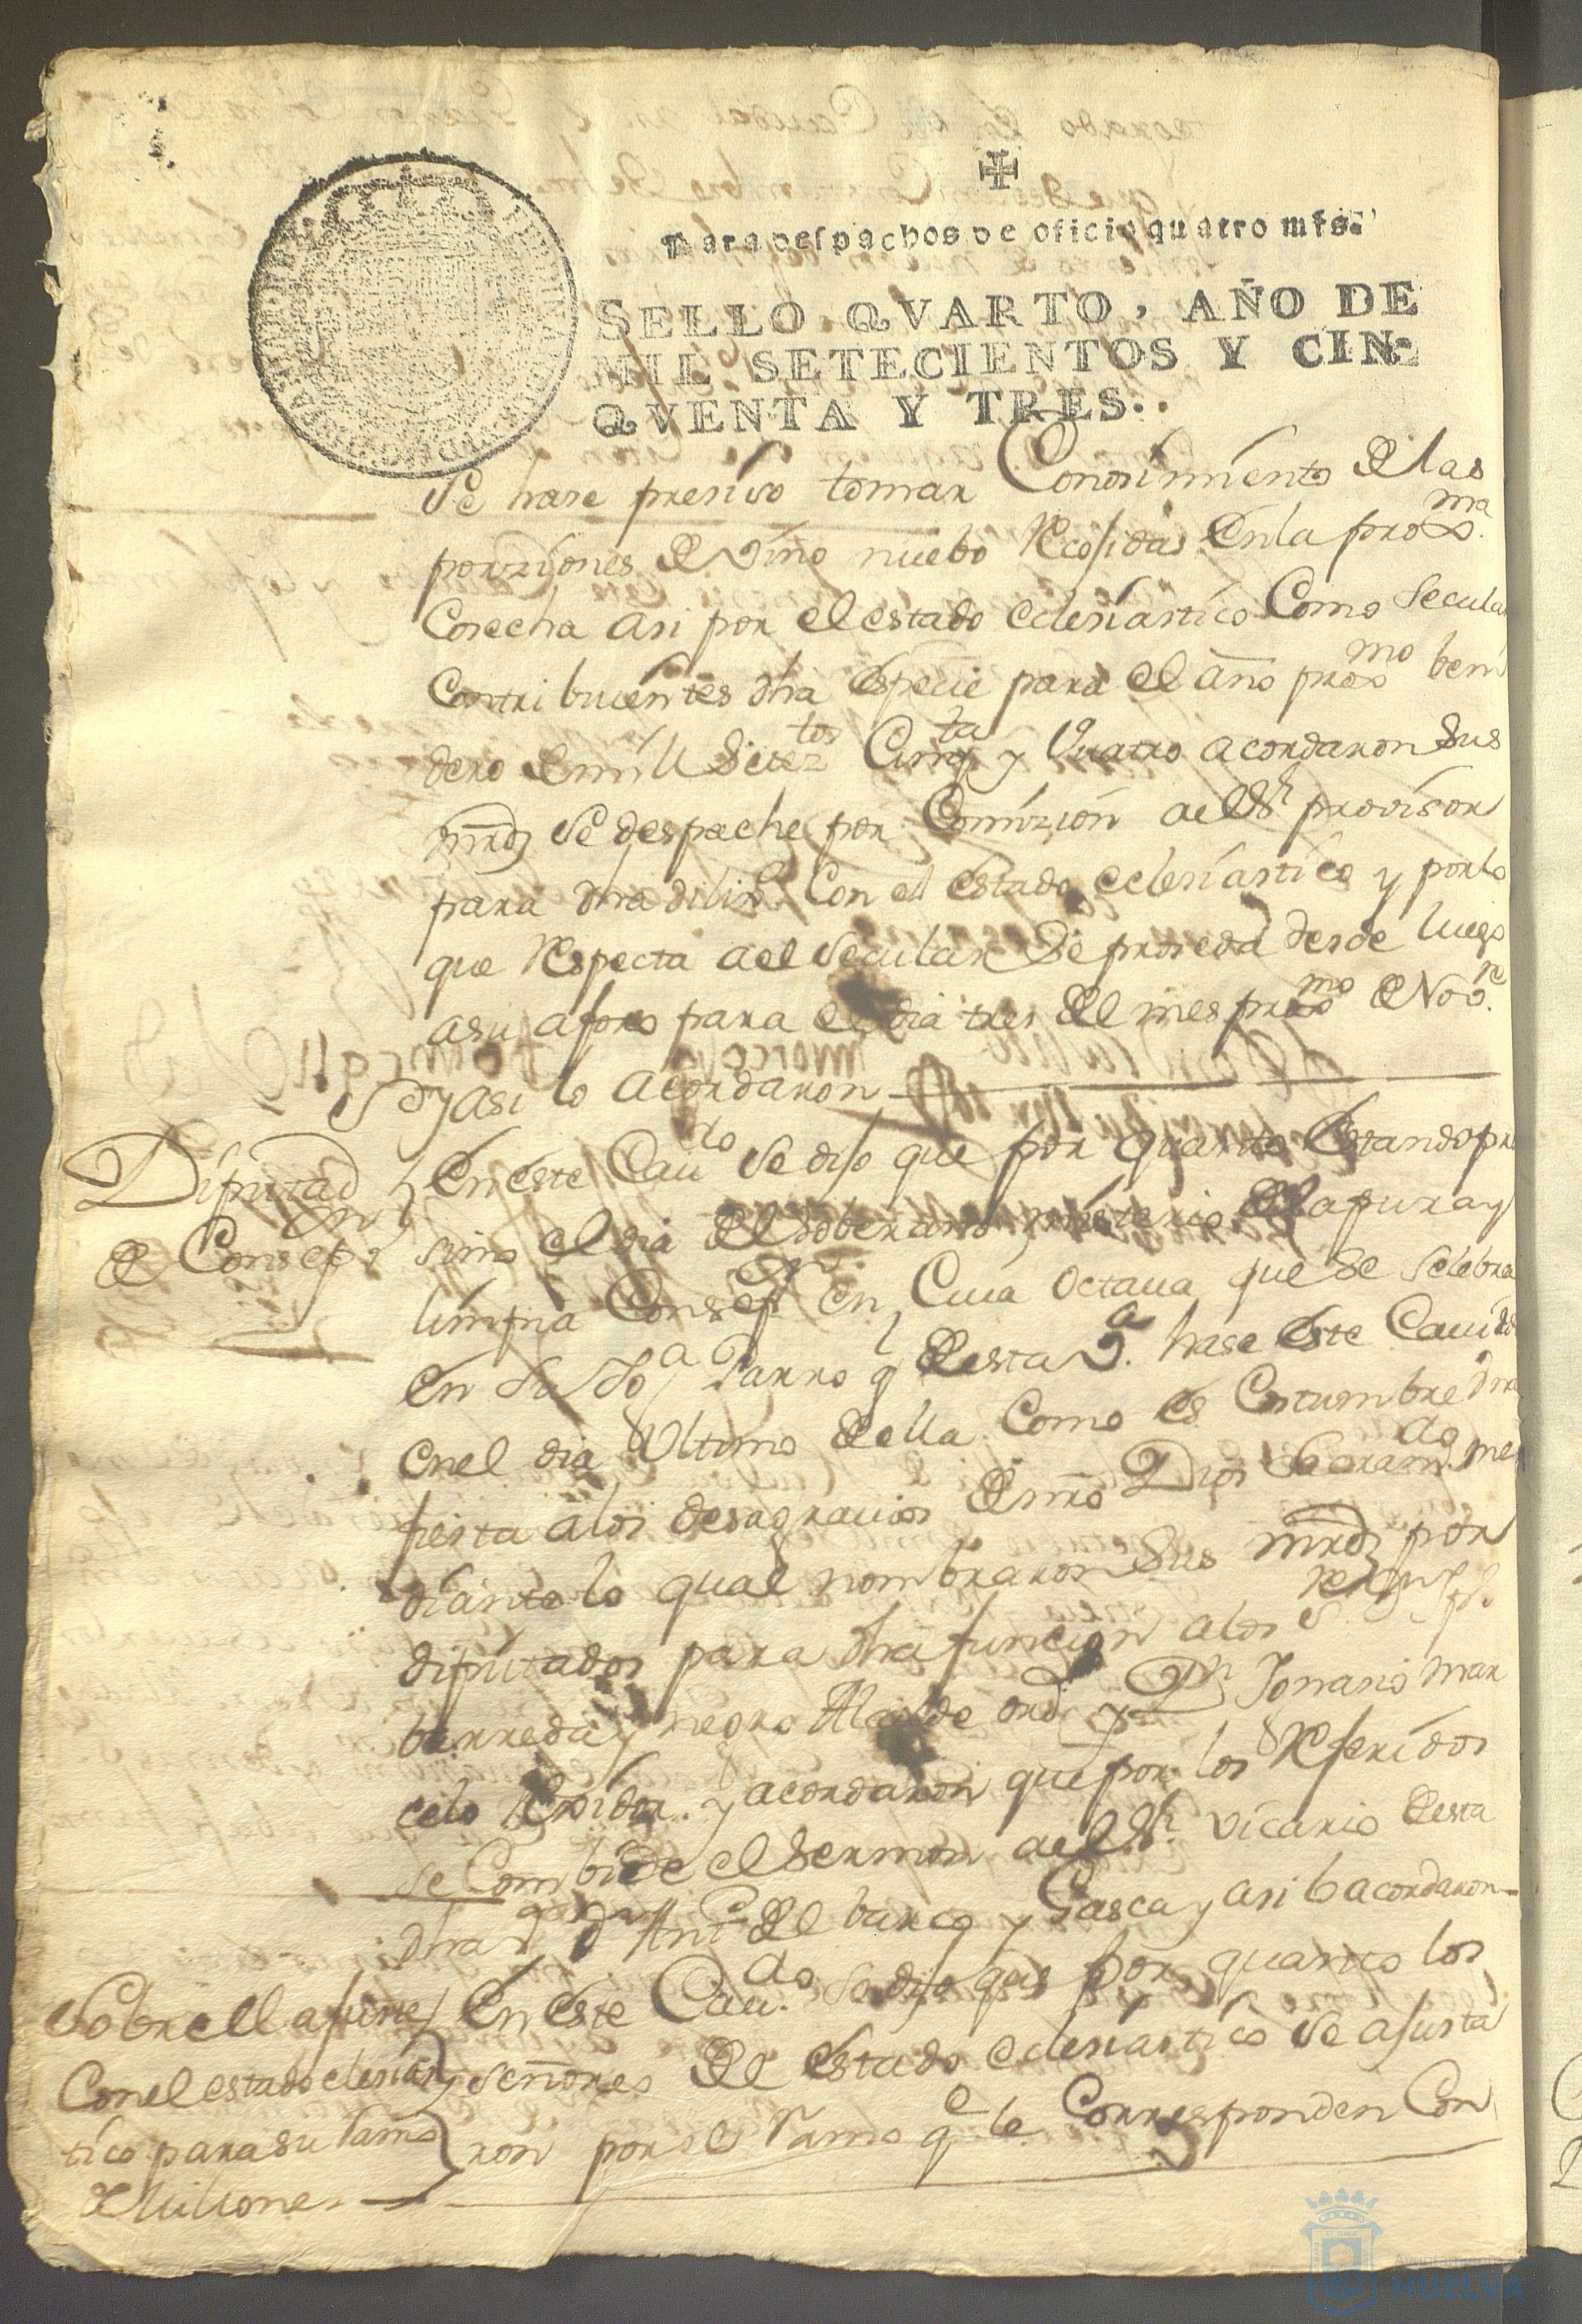 Para despachos de oficio quatro mrs.
SELLO QVARTO, AÑO DE
MIL SETECIENTOS Y CIN-
QVENTA Y TRES..
Se hase presiso tomar Conosimiento de las
porziones de vino nuebo Recojidas en la proxma
Cosecha asi por el estado eclesiastico Como Secular
Contribuientes dha espesie para el año proxmo beni
dero de mill Setezos Cinqta y Quatro acordaron Sus
mrds Se despache por Comizion ael Sr provisor
para dha dilixa Con el estado eclesiastico y por lo
que Respecta ael Secular Se proseda desde luego
asu aforo para el dia tres del mes proxmo de Nove
y asi lo acordaron
Diputadon
de Consepn
En este Caudo Se dijo que por quanto Estando pro
simo el dia del Soberano misterio de la pura y
limpia Consepn en Cuia Octaua que Se Selebra
en la Ygla Parroql desta Va hase este Cauildo
en el dia Ultimo della Como es Costumbre dha
fiesta a los desagrauios de nro Dios Sacramdo me
diante lo qual nombraron Sus mrds por
diputados para dha funcion a los Sres
barreda y negro Alcalde ordo y Dn Ygnasio mar
celo Rexidor y acordaron que por los Referidos
se Combide el Sermon ael Sr vicario desta
dha Va Dn Anto del barco y Gasca y asi lo acordaron
Sobre el ajuste
Con el estado elesias
tico para su Ramo
de Millones
En este Caudo se dijo que por quanto los
Señores del estado eclesiastico Se ajusta
ron por el Ramo qe le Corresponden Con
HUELVA